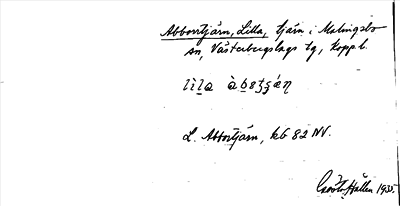 Abborrtjärn, Lilla, tjärn i Malingsbo
sn, Västerbergslags tg, Koppl.
L. Abbortjärn, kb 82 NV.
Hallén 1935.